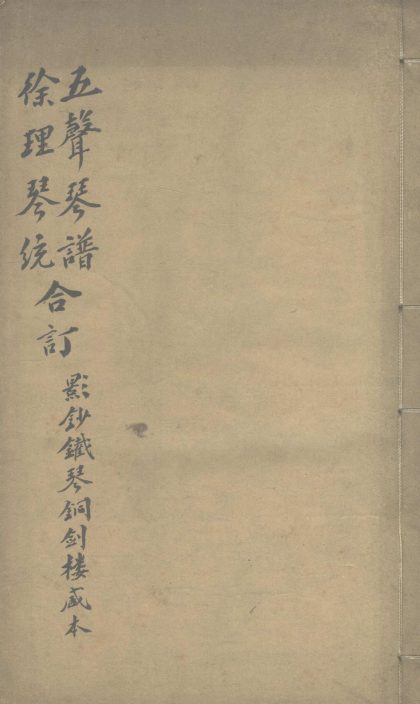 五聲琴譜
徐理琴统
合訂
影鈔鐵琴銅劍楼藏本